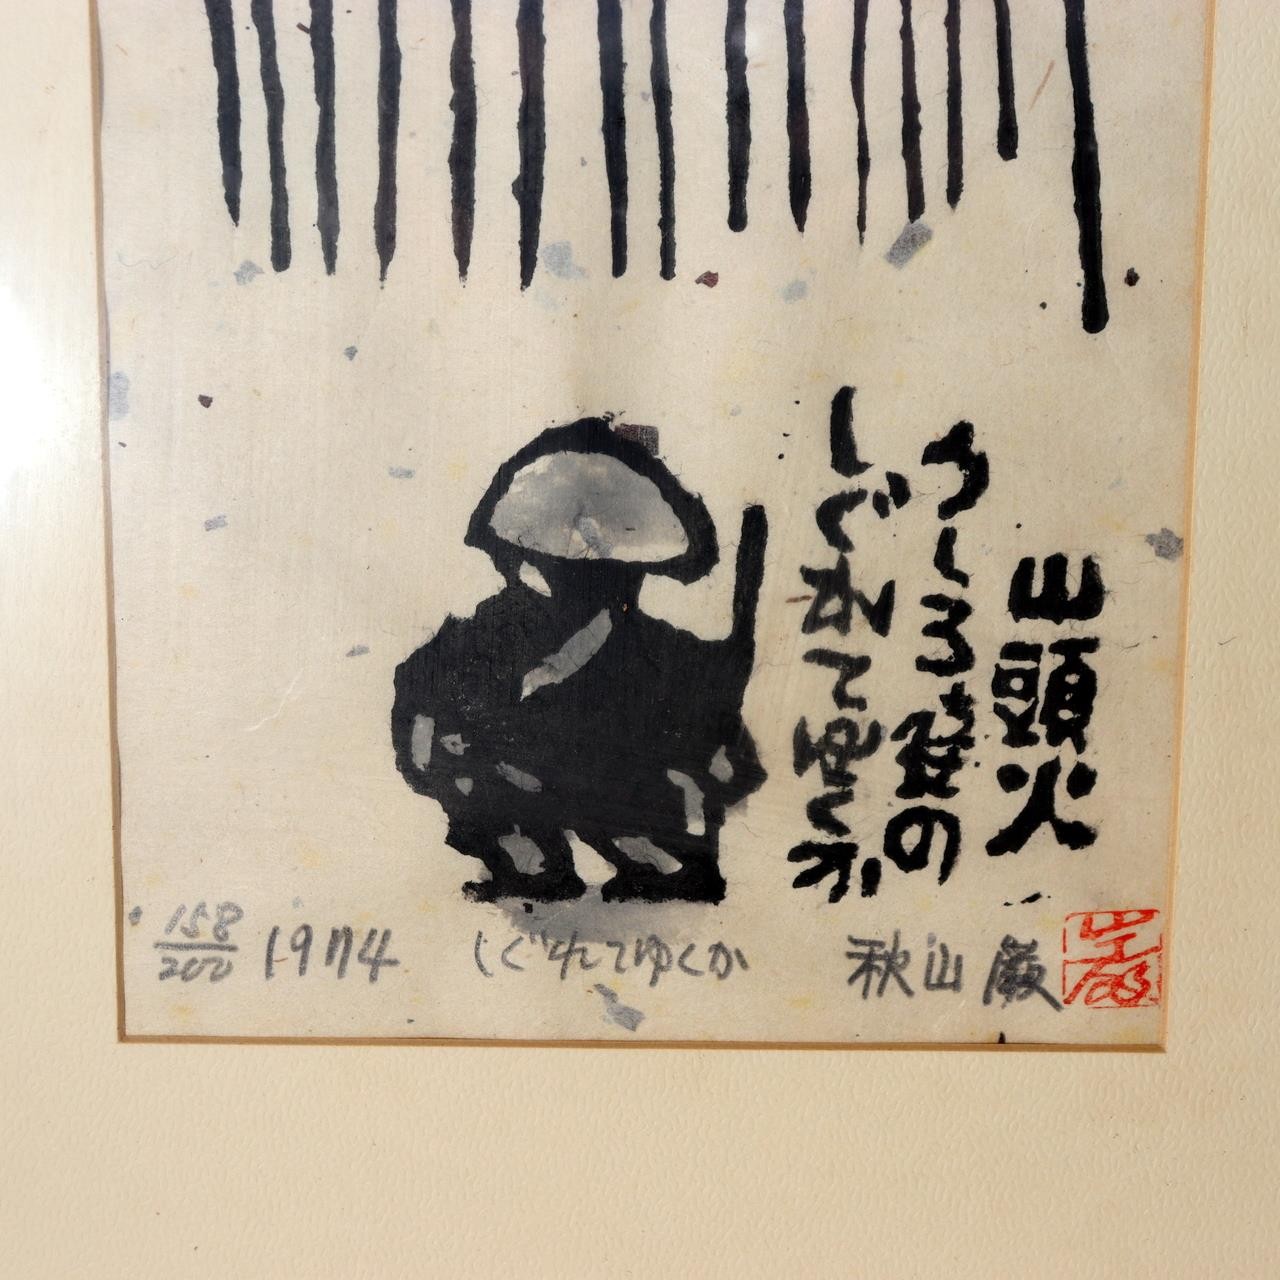 山頭火
うしろ姿の
しぐれて ゆくか
158/200 1974 しぐれてゆくか 秋山 巌